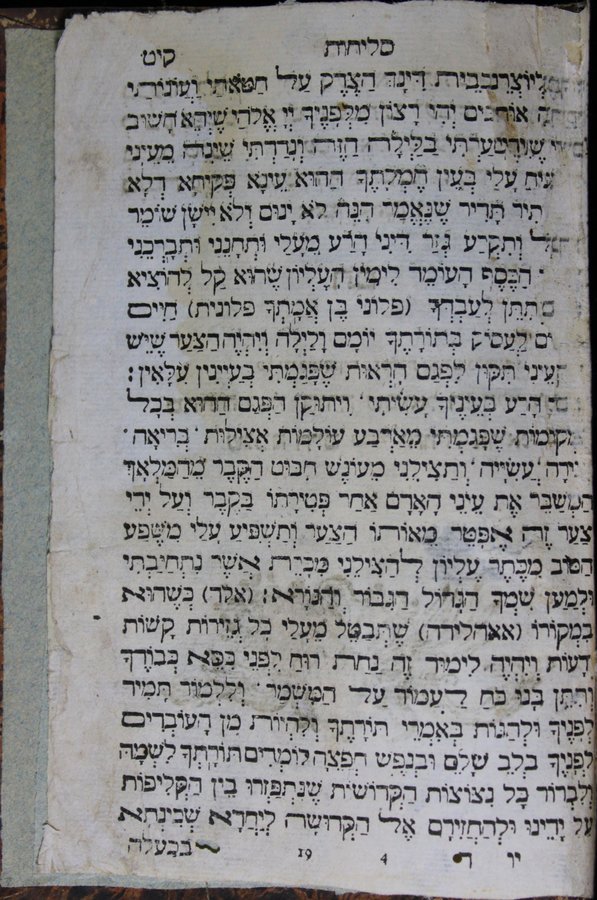 סליחות קיט
לִיוֹצְרִי בְּבֵית דִינְךָ הַצֶדֶק עַל חַטֹאתַי וַעֲוֹנוֹתַי
אוֹהֲבִים יְהִי רָצוֹן מִלְפָנֶיךָ יְיָ אֱלֹהַי שֶׁיְהֵא חָשׁוּב
שֶׁנִצְטַעַרְתִּי בַלַיְלָה הַזֶה וְנָדַדְתִּי שֵׁינָה מֵעֵינַי
עָלַי בְּעֵין חֶמְלָתֶךָ הַהוּא עֵינָא פְּקִיחָא דְלָא
תִיר תָּדִיר שֶׁנֶאֱמַר הִנֵה לֹא יָנוּם וְלֹא יִישָׁן שׁוֹמֵר
וְתִקְרַע גְזַר דִינִי הָרָע מֵעָלַי וּתְחָנֵנִי וּתְבָרְכֵנִי
הַכֶּסֶף הָעוֹמֵד לִימִין הָעֶלְיוֹן שֶׁהוּא קַל לְהוֹצִיא
תִתֵּן לְעַבְדְךָ (פלוני בֶּן אֲמָתְךָ פלונית) חַיִים
לַעֲסוֹק בְּתוֹרָתֶךָ יוֹמָם וָלַיְלָה וְיִהְיֶה הַצַעַר שֶׁיֵשׁ
עֵינַי תִּקוּן לִפְגַם הָרְאוּת שֶׁפָּגַמְתִּי בָּעֵינַיִן עִלָאִין:
הָרַע בְּעֵינֶיךָ עָשִׂיתִי וִיתוּקַן הַפְּגַם הַהוּא בְּכָל
מְקוֹמוֹת שֶׁפָּגַמְתִּי מֵאַרְבַּע עוֹלָמוֹת אֲצִילוּת בְּרִיאָה
יְצִירָה עֲשִׂיָיה וְתַצִילֵנִי מֵעוֹנֶשׁ חִבּוּט הַקֶבֶר מֵהַמַלְאָךְ
הַמְשַׁבֵּר אֶת עֵינֵי הָאָדָם אַחַר פְּטִירָתוֹ בַּקֶבֶר וְעַל יְדֵי
צַעַר זֶה אֶפָּטֵר מֵאוֹתוֹ הַצַעַר וְתַשְׁפִּיעַ עָלַי מִשֶׁפַע
הַטוֹב מִכֶּתֶר עֶלְיוֹן לְהַצִילֵנִי מִכָּרֵת אֲשֶׁר נִתְחַיַבְתִּי
וּלְמַעַן שִׁמְךָ הַגָדוֹל הַגִבּוֹר וְהַנוֹרָא: (אלד) כְּשֶׁהוּא
בִמְקוֹרוֹ שֶׁתְּבַטֵל מֵעָלַי כָּל גְזֵירוֹת קָשׁוֹת
וְיִהְיֶה לִימוּד זֶה נַחַת רוּחַ לִפְנֵי כִּסֵא כְּבוֹדֶךָ
וְתִתֵּן בָּנוּ כֹּחַ לַעֲמוֹד עַל הַמִשְׁמָר וְלִלְמוֹד תָּמִיד
לְפָנֶיךָ וְלַהֲגוֹת בְּאִמְרֵי תוֹרָתֶךָ וְלִהְיוֹת מִן הָעוֹבְדִים
לְפָנֶיךָ בְלֵב שָׁלֵם וּבְנֶפֶשׁ חֲפֵצָה לוֹמְדִים תּוֹרָתְךָ לִשְׁמָהּ
וְלִבְרוֹר כָּל נִצוֹצוֹת הַקְדוֹשׁוֹת שֶׁנִתְפַּזְרוּ בֵּין הַקְלִיפּוֹת
עַל יָדֵינוּ וּלְהַחֲזִירָם אֶל הַקְדוּשָׁה לְיַחֲדָא שְׁכִינְתָּא
יו ד 4 19 בבעלה